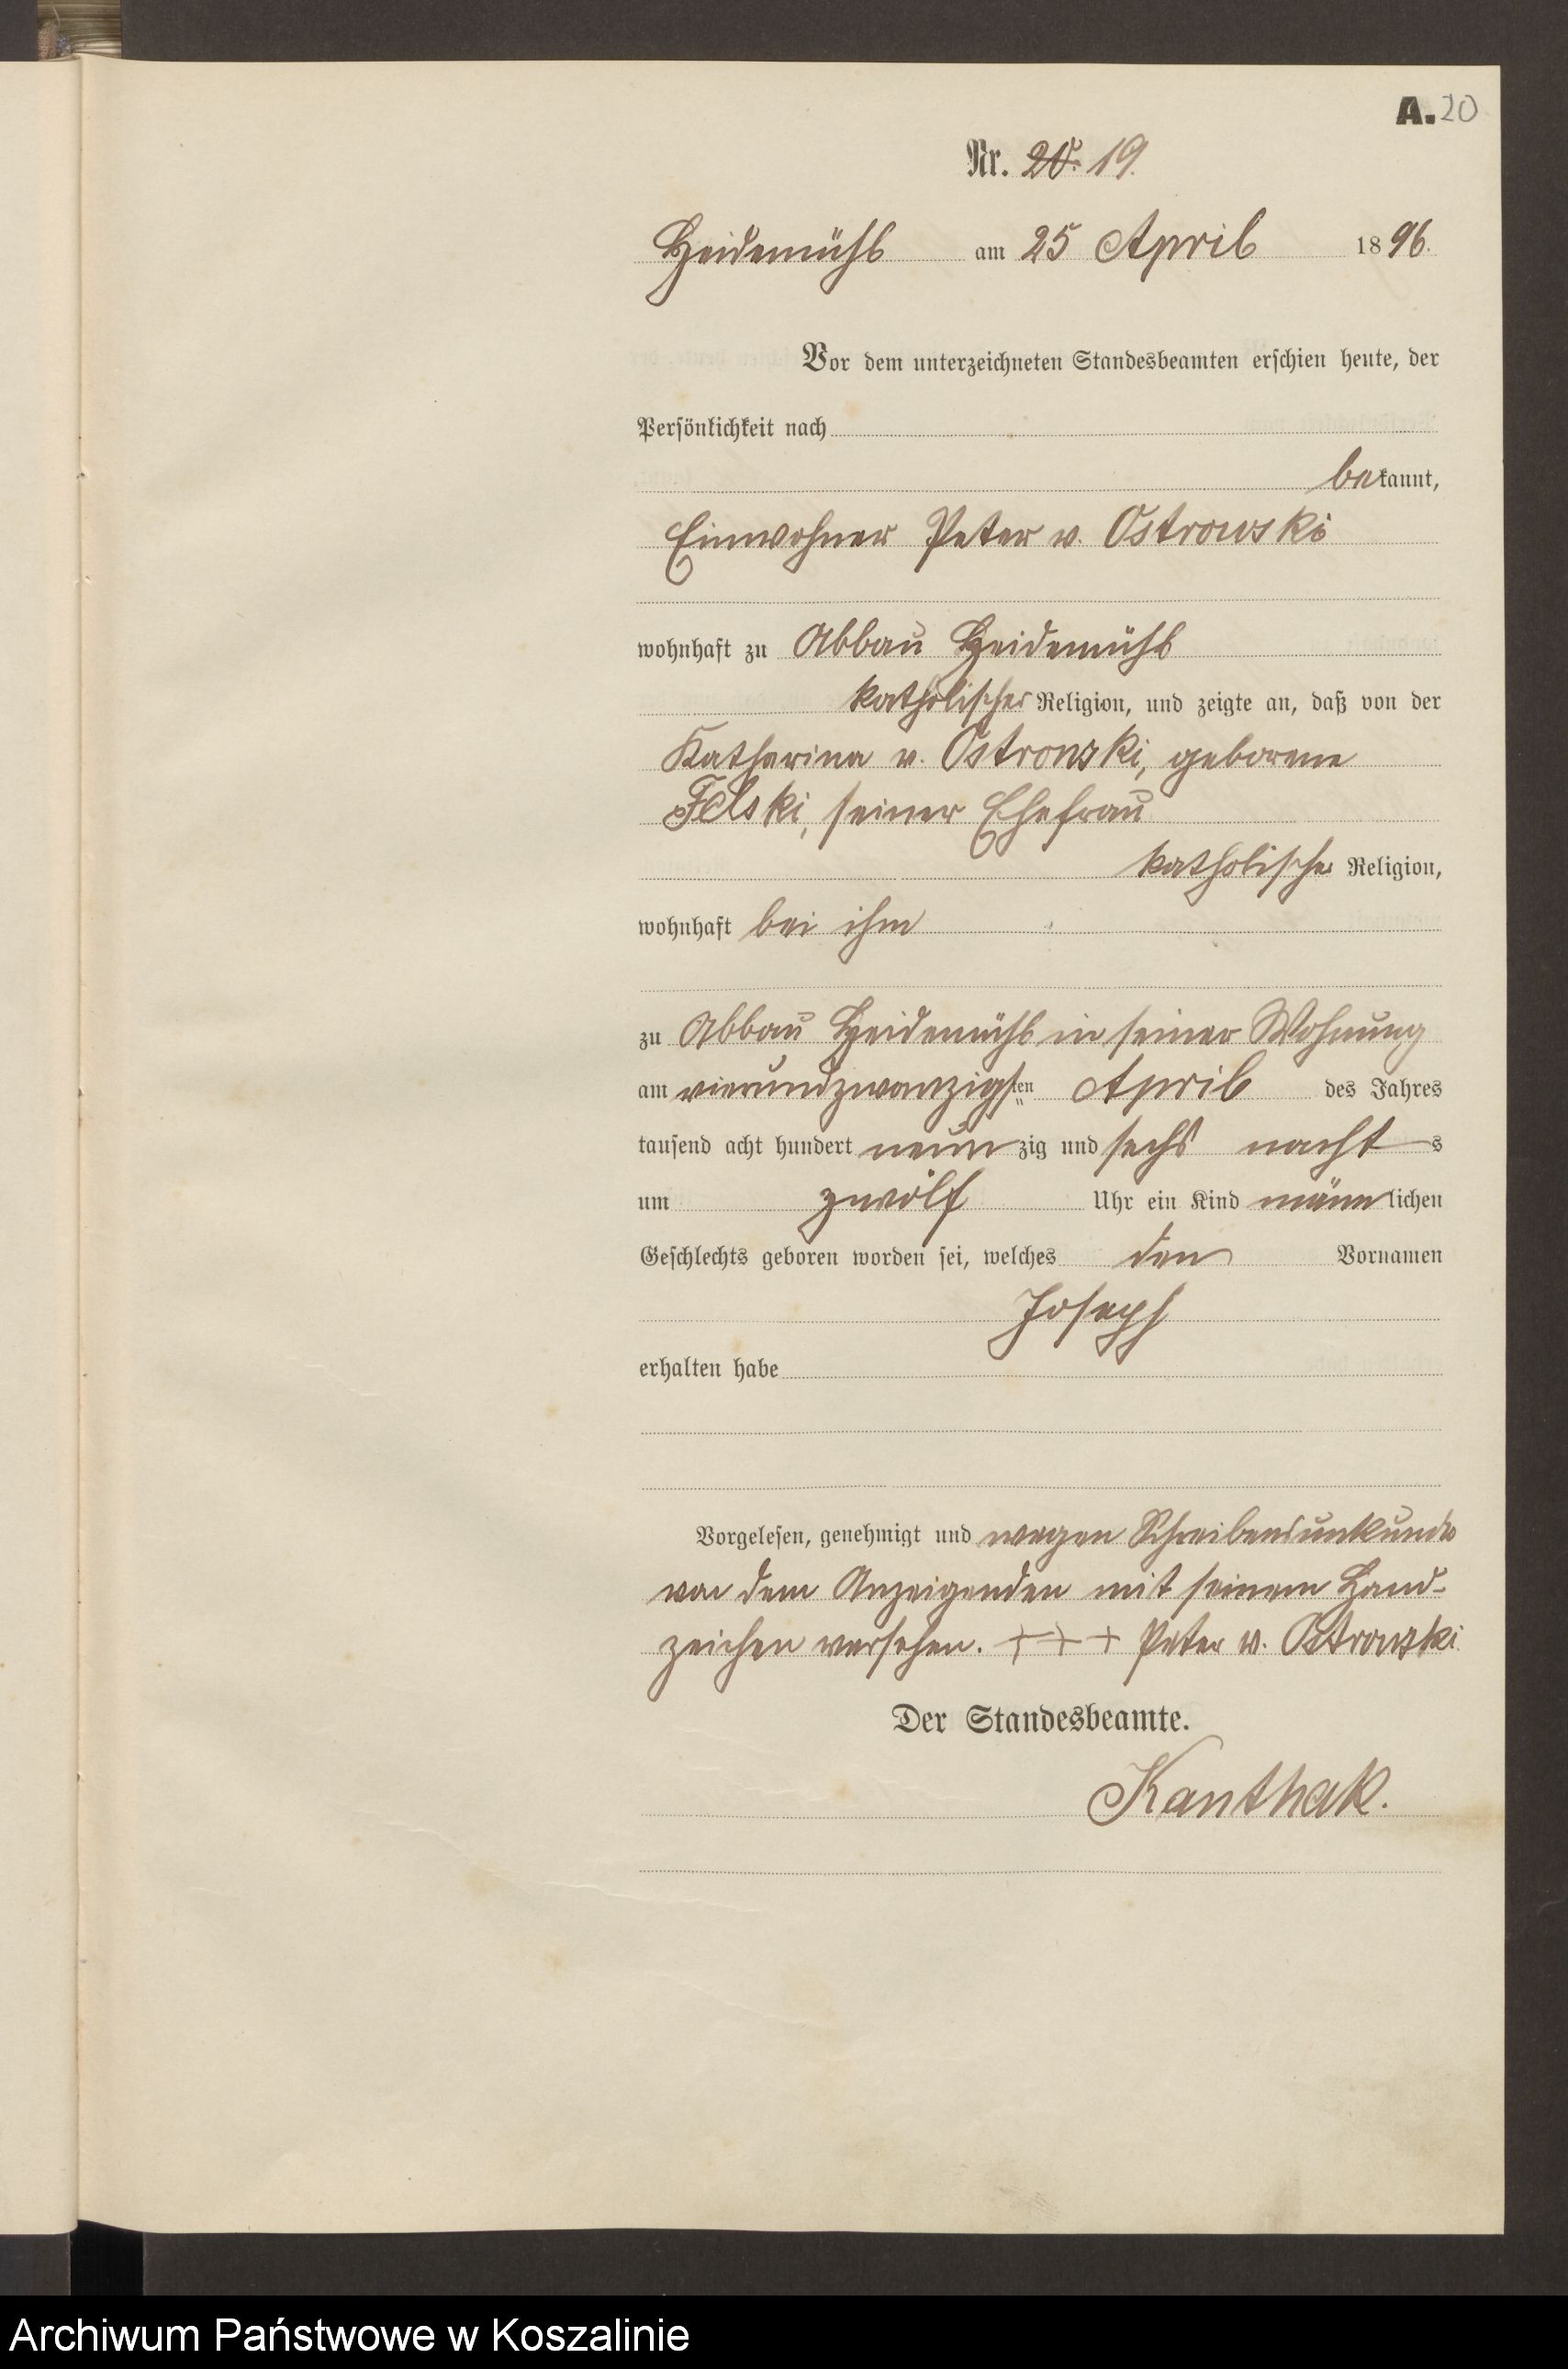 A. 20
Nr. 20. 19.
Heidemühl am 25 April 1896.
Vor dem unterzeichneten Standesbeamten erschien heute, der
Persönlichkeit nach
bekannt,
Einwohner Peter v. Ostrowski
wohnhaft zu Abbau Heidemühl
katholischer Religion, und zeigte an, daß von der
Katharina v. Ostrowski, geborene
Felski, seiner Ehefrau
katholischer Religion,
wohnhaft bei ihm
zu Abbau Heidemühl in seiner Wohnung
am vierundzwanzigsten April des Jahres
tausend acht hundert neunzig und sechs nachts
um zwölf Uhr ein Kind männlichen
Geschlechts geboren worden sei, welches den Vornamen
Joseph
erhalten habe
Vorgelesen, genehmigt und wegen Schreibensunkunde
von dem Anzeigenden mit seinem Hand-
zeichen versehen. +++ Peter v. Ostrowski
Der Standesbeamte.
Kanthak.
Archiwum Państwowe w Koszalinie